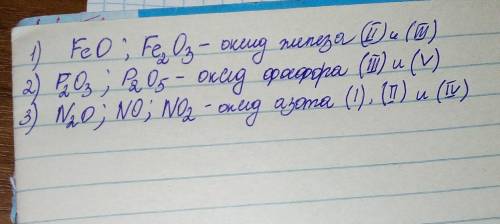 1) FeO ; Fe₂O₃ - оксид железа (II) и (III)
2) P₂O₃ ; P₂O₅ - оксид фосфора (III) и (V)
3) N₂O ; NO ; NO₂ - оксид азота (I), (II) и (IV)